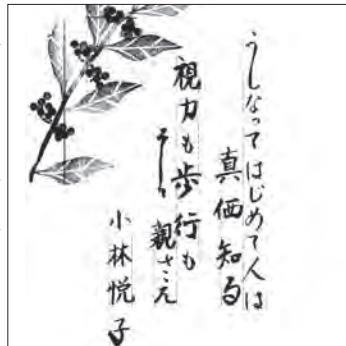 うしなってはじめて人は
真価知る
視力も歩行も
そして親さえ
小林悦子